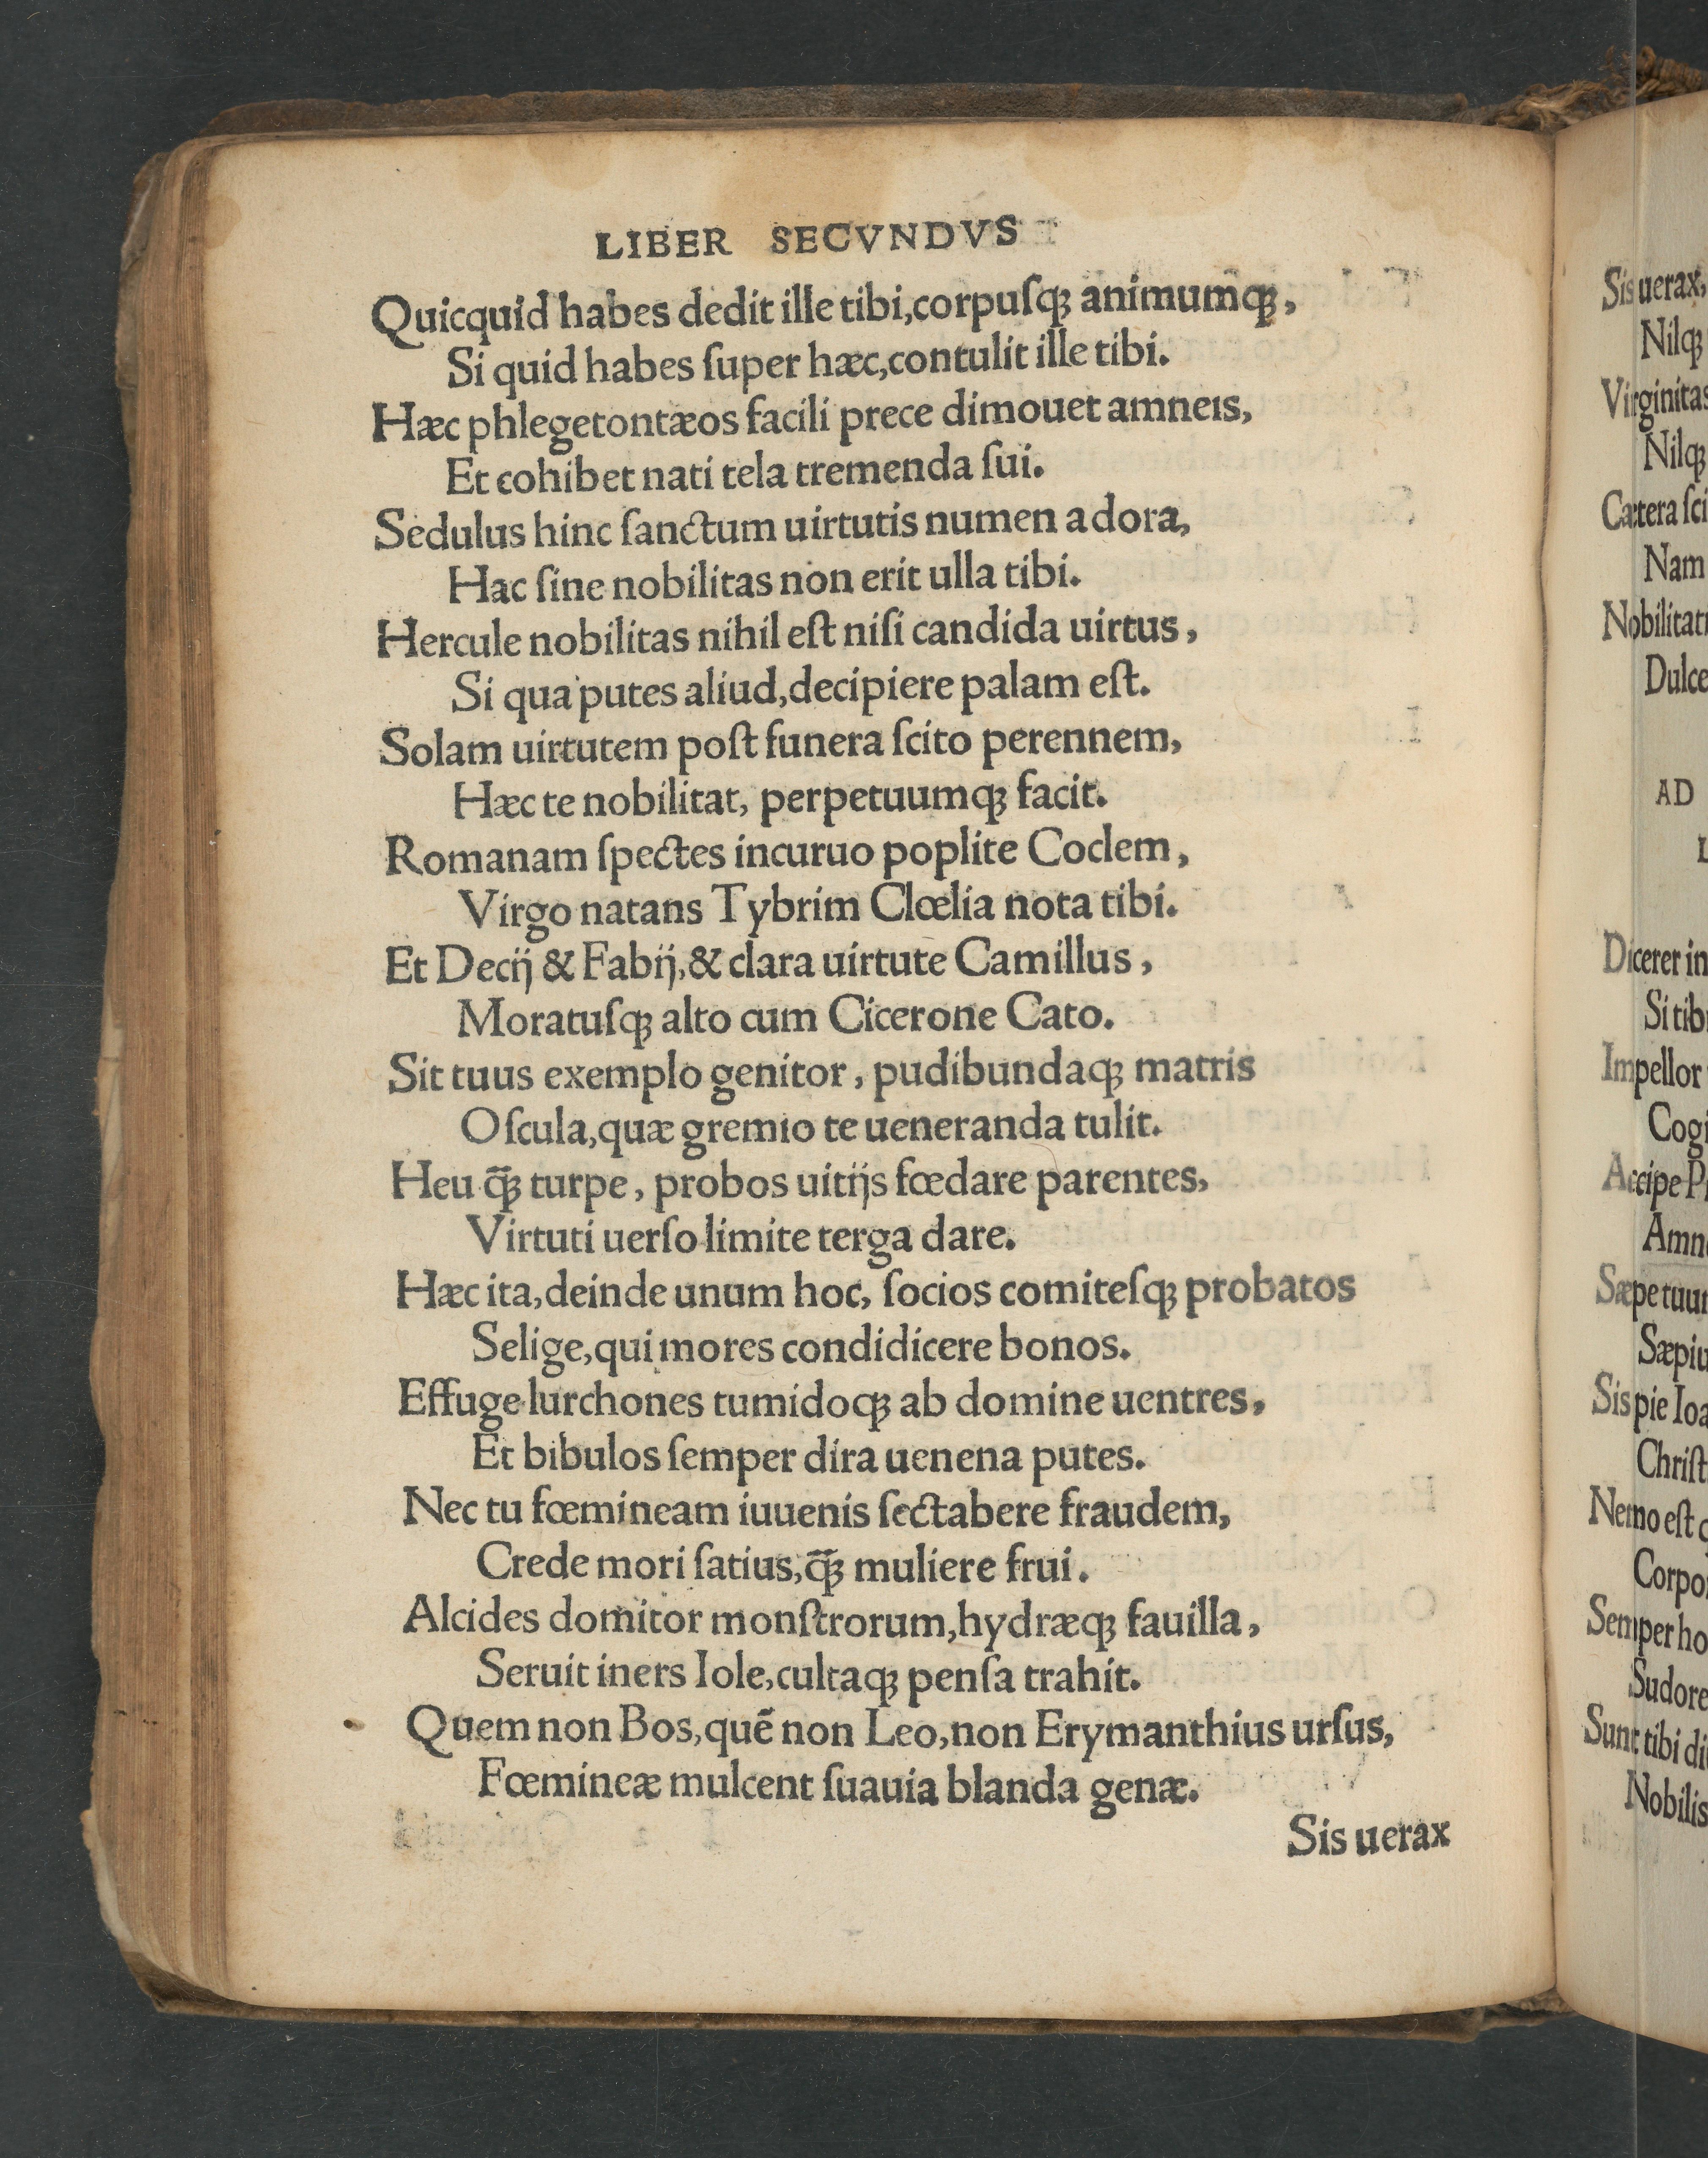 LIBER SECVNDVS
Quicquid habes dedit ille tibi,corpuſqꝫ animumqꝫ,
Si quid habes ſuper hæc,contulit ille tibi.
Hæc phlegetontæos facili prece dimouet amneis,
Et cohibet nati tela tremenda ſui.
Sedulus hinc ſanctum uirtutis numen adora,
Hac ſine nobilitas non erit ulla tibi.
Hercule nobilitas nihil eſt niſi candida uirtus,
Si qua putes aliud,decipiere palam eſt.
Solam uirtutem poſt funera ſcito perennem,
Hæc te nobilitat, perpetuumqꝫ facit.
Romanam ſpectes incuruo poplite Coclem,
Virgo natans Tybrim Clœlia nota tibi.
Et Decij & Fabij,& clara uirtute Camillus,
Moratuſqꝫ alto cum Cicerone Cato.
Sit tuus exemplo genitor, pudibundaqꝫ matris
Oſcula,quæ gremio te ueneranda tulit.
Heu q̄ꝫ turpe, probos uitijs fœdare parentes,
Virtuti uerſo limite terga dare.
Hæc ita,deinde unum hoc, ſocios comiteſqꝫ probatos
Selige,qui mores condidicere bonos.
Effuge lurchones tumidoqꝫ ab domine uentres,
Et bibulos ſemper dira uenena putes.
Nec tu fœmineam iuuenis ſectabere fraudem,
Crede mori ſatius,q̄ꝫ muliere frui.
Alcides domitor monſtrorum,hydræqꝫ fauilla,
Seruit iners Iole,cultaqꝫ penſa trahit.
Quem non Bos,quē non Leo,non Erymanthius urſus,
Fœmineæ mulcent ſuauia blanda genæ.
Sis uerax
Sis uerax,
Nilqꝫ
Virginitas
Nilqꝫ
Cætera
Nam
Dulce
AD
Dicerer in
Si
Impellor
Accipe
Sæpe
Sis pie
Nemo eſt
Semper
Sunt tibi
Nobilis